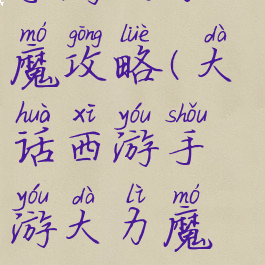 mó gōng lüè dà
魔攻略(大
huà xī yóu shǒu
话西游手
yóu dà lì mó
游大力魔